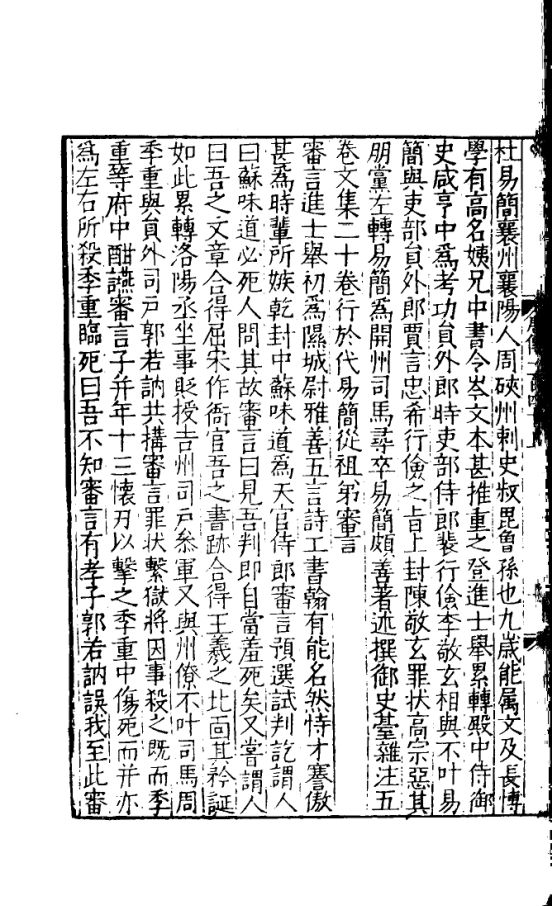 杜易簡襄州襄陽人周硤州刺史叔毘曾孫也九歲能属文及長博
學有高名姨兄中書令岑文本甚推重之登進士舉累轉殿中侍御
史咸亨中爲考功員外郎時吏部侍郎裴行儉李敬玄相與不叶易
簡與吏部員外郎賈言忠希行儉之旨上封陳敬玄罪狀高宗惡其
朋黨左轉易簡爲開州司馬尋卒易簡頗善著述撰御史臺雜注五
卷文集二十卷行於代易簡從祖弟審言
審言進士舉初爲隰城尉雅善五言詩工書翰有能名然恃才謇傲
甚爲時輩所嫉乾封中蘇味道爲天官侍郎審言預選試判訖謂人
曰蘇味道必死人問其故審言曰見吾判即自當羞死矣又嘗謂人
曰吾之文章合得屈宋作衙官吾之書跡合得王羲之北面其矜誕
如此累轉洛陽丞坐事貶授吉州司戶叅軍又與州僚不叶司馬周
季重與員外司戶郭若訥共搆審言罪狀繫獄將因事殺之既而季
重等府中酣讌審言子并年十三懷刃以擊之季重中傷死而并亦
爲左右所殺季重臨死曰吾不知審言有孝子郭若訥誤我至此審